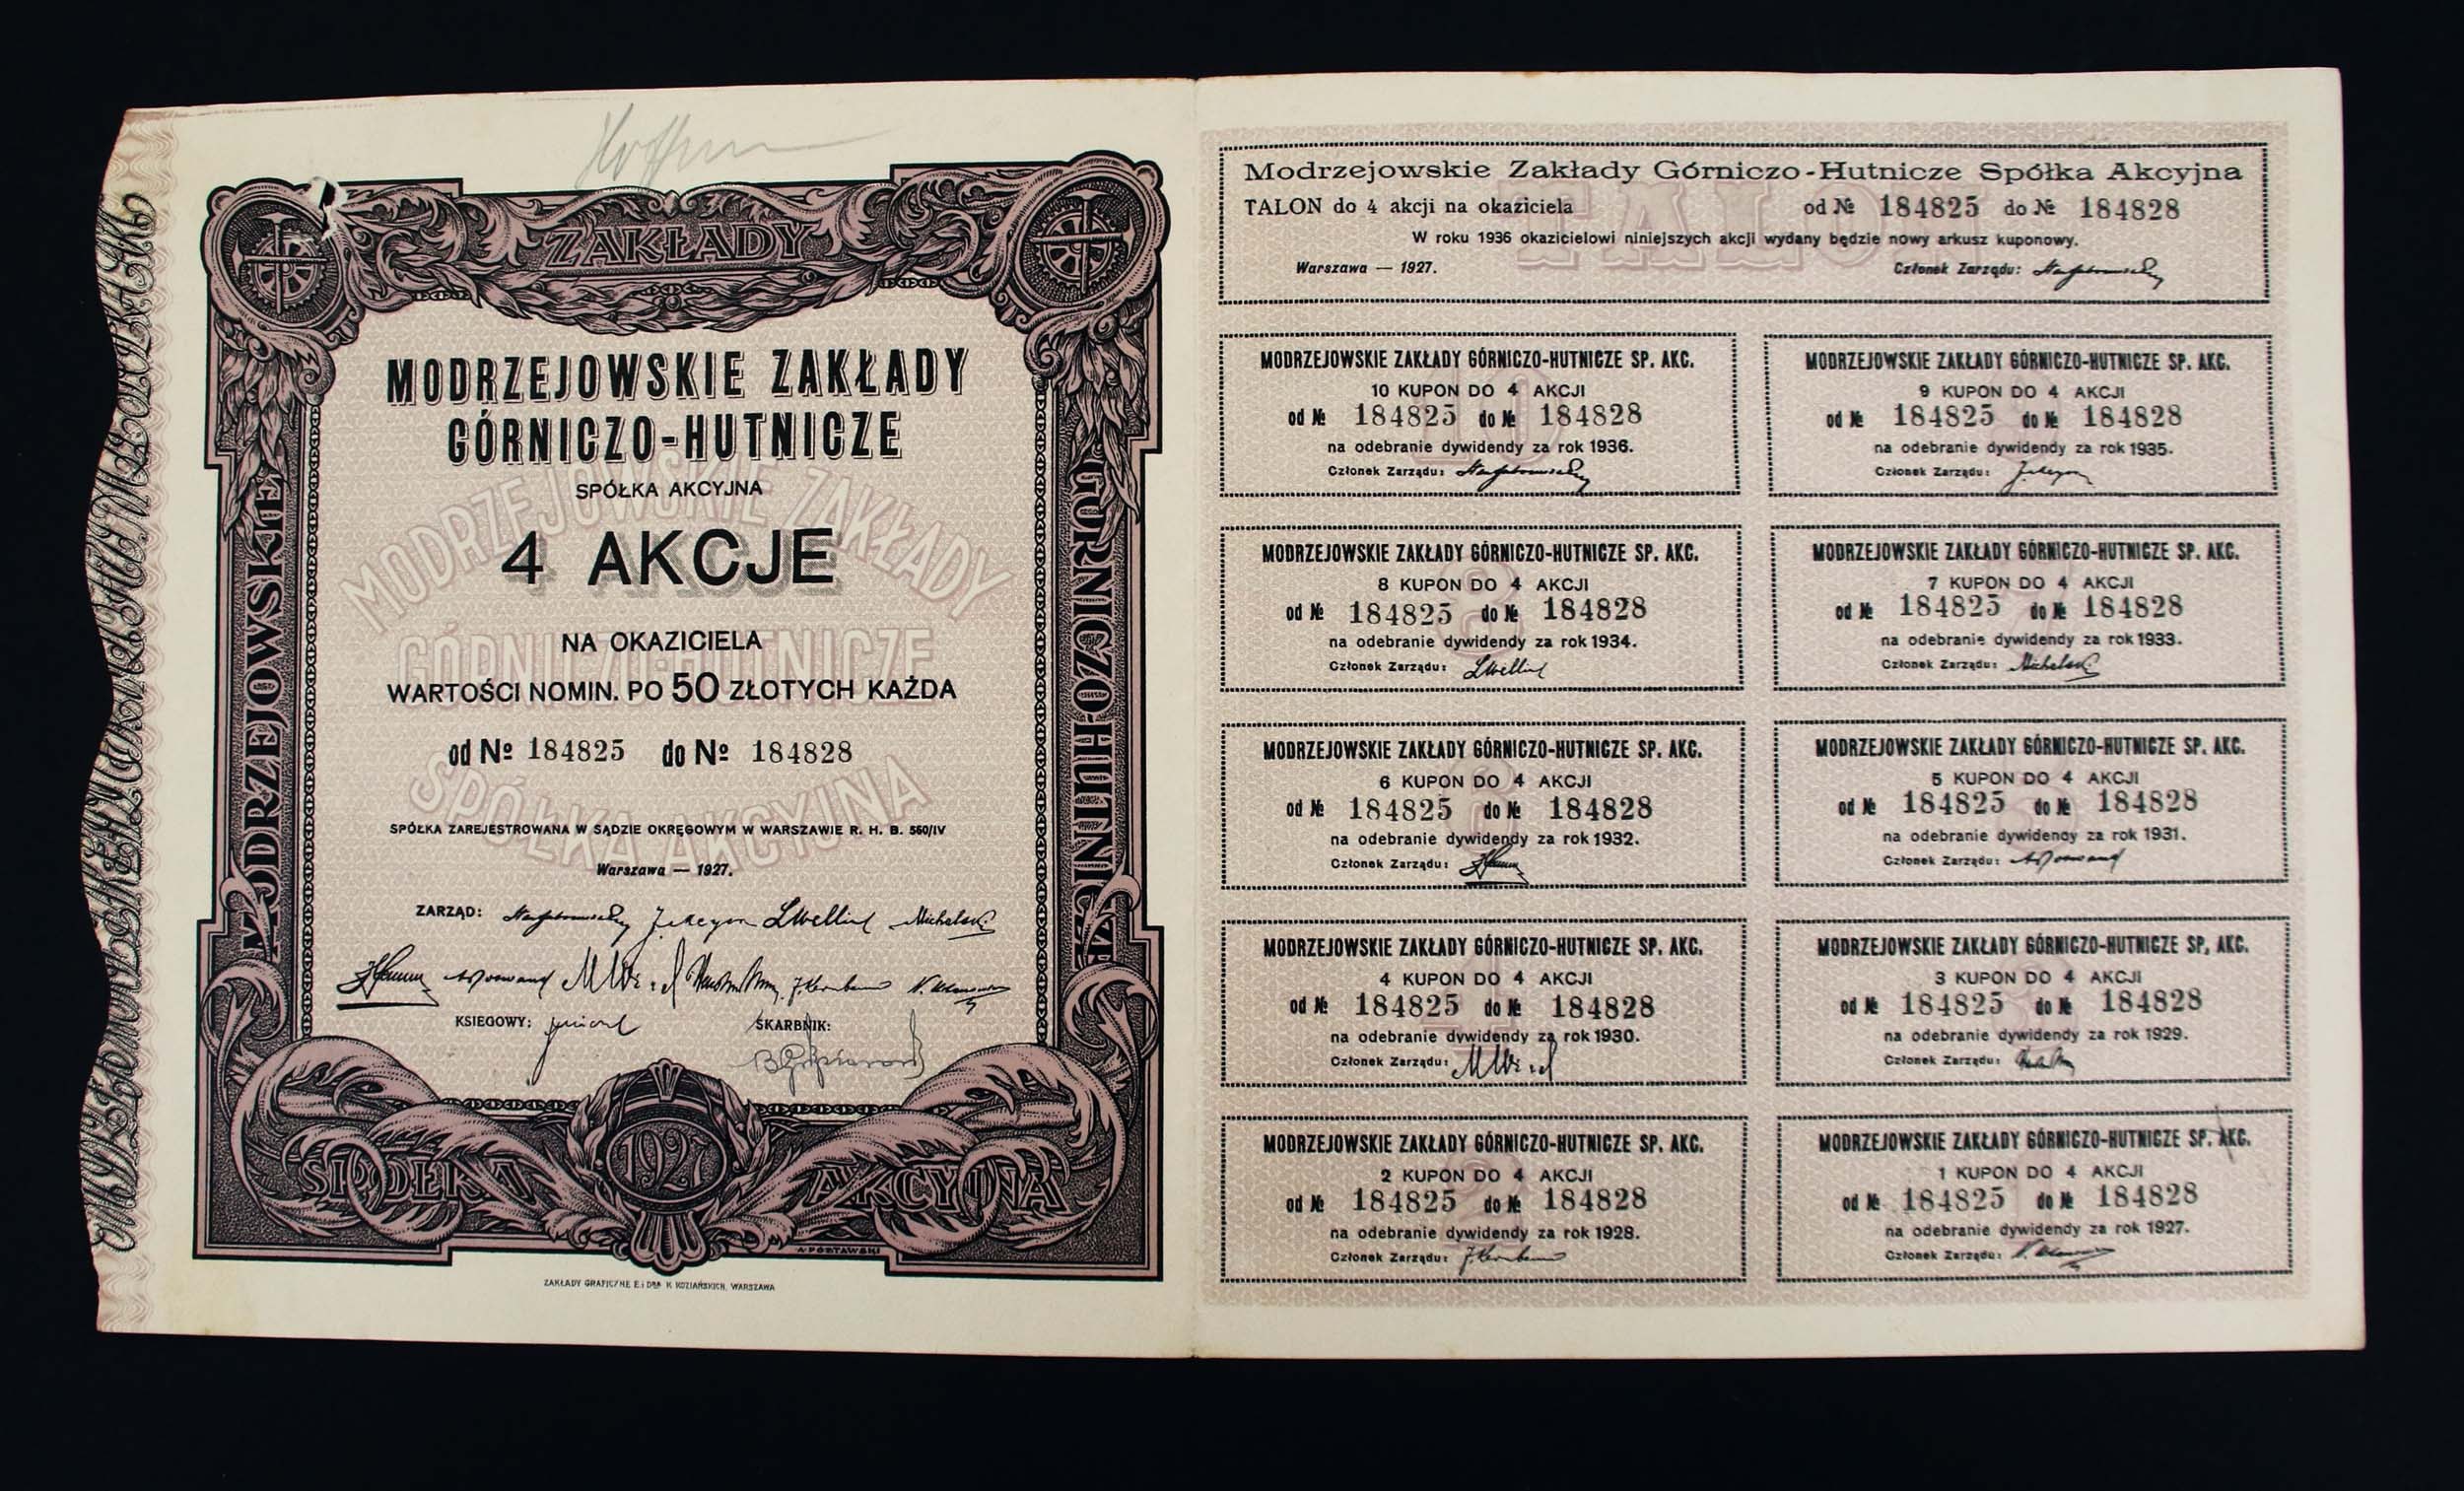 ZAKŁADY
MODRZEJOWSKIE
GÓRNICZO-HUTNICZE
SPÓŁKA
AKCYJNA
1927
MODRZEJOWSKIE ZAKŁADY
GÓRNICZO-HUTNICZE
SPÓŁKA AKCYJNA
4 AKCJE
NA OKAZICIELA
WARTOŚCI NOMIN. PO 50 ZŁOTYCH KAŻDA
od № 184825 do № 184828
SPÓŁKA ZAREJESTROWANA W SĄDZIE OKRĘGOWYM W WARSZAWIE R. H. B. 560/IV
Warszawa — 1927.
ZARZĄD:
KSIEGOWY: SKARBNIK:
MODRZEJOWSKIE ZAKŁADY
GÓRNICZO-HUTNICZE
SPÓŁKA AKCYJNA
A. PÓŁTAWSKI
ZAKŁADY GRAFICZNE E. i DRA K. KOZIAŃSKICH, WARSZAWA
TALON
Modrzejowskie Zakłady Górniczo-Hutnicze Spółka Akcyjna
TALON do 4 akcji na okaziciela od № 184825 do № 184828
W roku 1936 okazicielowi niniejszych akcji wydany będzie nowy arkusz kuponowy.
Warszawa — 1927. Członek Zarządu:
MODRZEJOWSKIE ZAKŁADY GÓRNICZO-HUTNICZE SP. AKC.
10 KUPON DO 4 AKCJI
od № 184825 do № 184828
na odebranie dywidendy za rok 1936.
Członek Zarządu:
MODRZEJOWSKIE ZAKŁADY GÓRNICZO-HUTNICZE SP. AKC.
9 KUPON DO 4 AKCJI
od № 184825 do № 184828
na odebranie dywidendy za rok 1935.
Członek Zarządu:
MODRZEJOWSKIE ZAKŁADY GÓRNICZO-HUTNICZE SP. AKC.
8 KUPON DO 4 AKCJI
od № 184825 do № 184828
na odebranie dywidendy za rok 1934.
Członek Zarządu:
MODRZEJOWSKIE ZAKŁADY GÓRNICZO-HUTNICZE SP. AKC.
7 KUPON DO 4 AKCJI
od № 184825 do № 184828
na odebranie dywidendy za rok 1933.
Członek Zarządu:
MODRZEJOWSKIE ZAKŁADY GÓRNICZO-HUTNICZE SP. AKC.
6 KUPON DO 4 AKCJI
od № 184825 do № 184828
na odebranie dywidendy za rok 1932.
Członek Zarządu:
MODRZEJOWSKIE ZAKŁADY GÓRNICZO-HUTNICZE SP. AKC.
5 KUPON DO 4 AKCJI
od № 184825 do № 184828
na odebranie dywidendy za rok 1931.
Członek Zarządu:
MODRZEJOWSKIE ZAKŁADY GÓRNICZO-HUTNICZE SP. AKC.
4 KUPON DO 4 AKCJI
od № 184825 do № 184828
na odebranie dywidendy za rok 1930.
Członek Zarządu:
MODRZEJOWSKIE ZAKŁADY GÓRNICZO-HUTNICZE SP, AKC.
3 KUPON DO 4 AKCJI
od № 184825 do № 184828
na odebranie dywidendy za rok 1929.
Członek Zarządu:
MODRZEJOWSKIE ZAKŁADY GÓRNICZO-HUTNICZE SP. AKC.
2 KUPON DO 4 AKCJI
od № 184825 do № 184828
na odebranie dywidendy za rok 1928.
Członek Zarządu:
MODRZEJOWSKIE ZAKŁADY GÓRNICZO-HUTNICZE SP. AKC.
1 KUPON DO 4 AKCJI
od № 184825 do № 184828
na odebranie dywidendy za rok 1927.
Członek Zarządu: